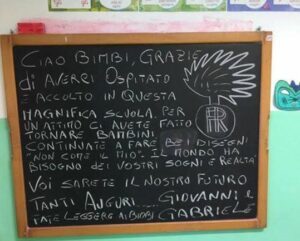 CIAO BIMBI, GRAZIE
di AVERCI OSPITATO
E ACCOLTO IN QUESTA
MAGNIFICA SCUOLA, PER
UN ATTIMO CI AVETE FATTO
TORNARE BAMBINI.
CONTINUATE A FARE BEI DISEGNI
"NON COME IL MIO". IL MONDO HA
BISOGNO DEI VOSTRI SOGNI E REALTÀ
VOI SARETE IL NOSTRO FUTURO
TANTI AUGURI.... GIOVANNI E
FATE LEGGERE AI BIMBI GABRIELE